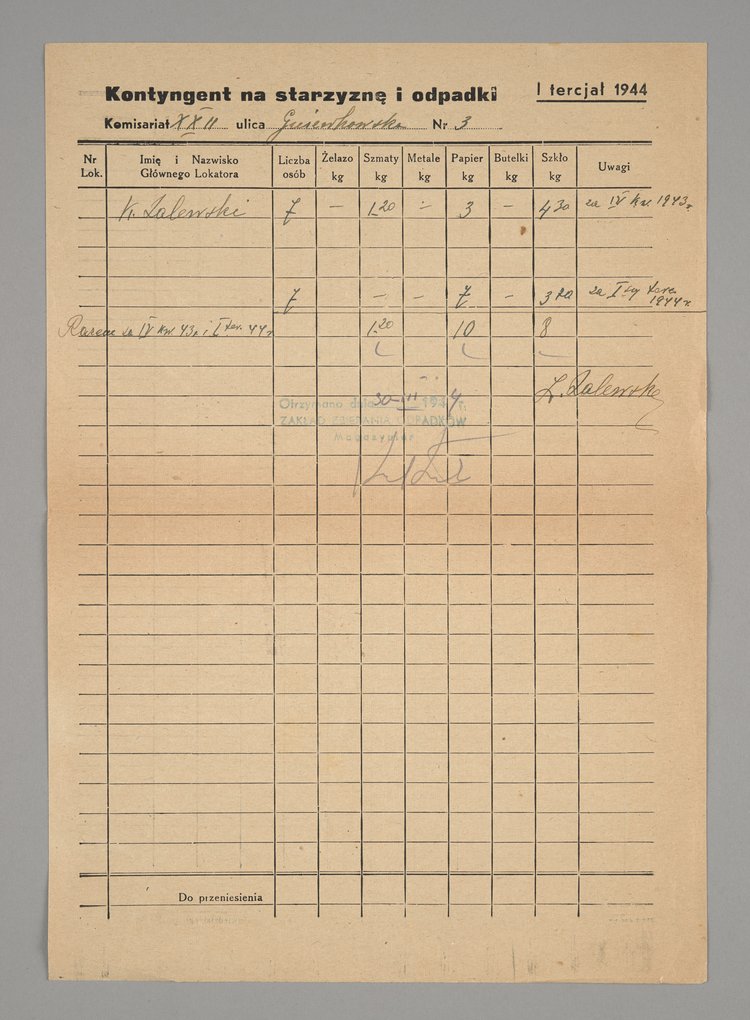 Kontyngent na starzyznę i odpadki
I tercjał 1944
Komisariat XXII ulica Nr 3
Nr Lok. Imię i Nazwisko Głównego Lokatora Liczba osób Żelazo kg Szmaty kg Metale kg Papier kg Butelki kg Szkło kg Uwagi
K. Zalewski 7 – 1.20 – 3 – 4 30 za IV kw 1943 r.
7 – – 7 – 3 70 za I-szy terc. 1944 r.
Razem za IV kw. 43 r. i I ter. 44 r. 1.20 10 8
Otrzymano dnia 30-III 1944 r.
ZAKŁAD ZBIERANIA ODPADKÓW
Magazynier
Do przeniesienia